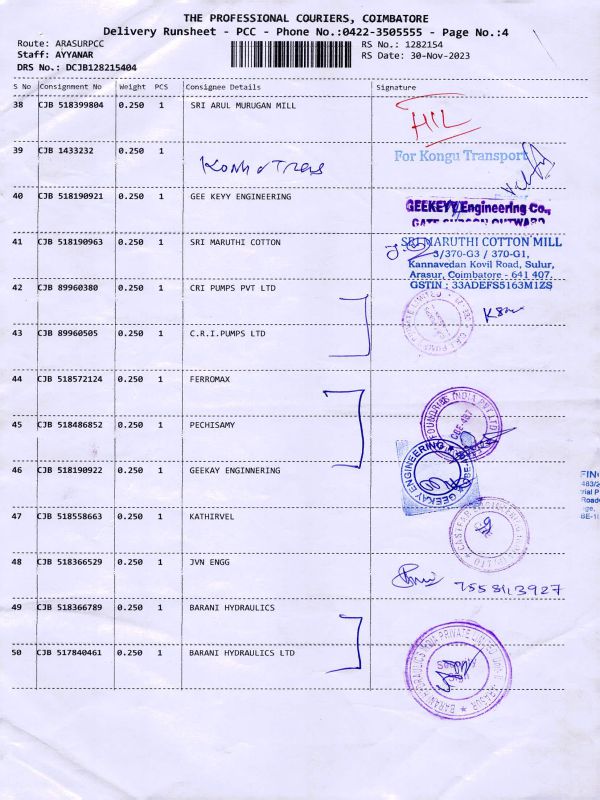 THE PROFESSIONAL COURIERS, COIMBATORE
Delivery Runsheet - PCC - Phone No.:0422-3505555 - Page No.:4
Route: ARASURPCC RS No.: 1282154
Staff: AYYANAR RS Date: 30-Nov-2023
DRS No.: DCJB128215404
S No Consignment No Weight PCS Consignee Details Signature
38 CJB 518399804 0.250 1 SRI ARUL MURUGAN MILL
39 CJB 1433232 0.250 1 For Kongu Transport
40 CJB 518190921 0.250 1 GEE KEYY ENGINEERING GEEKEYY Engineering Co.,
41 CJB 518190963 0.250 1 SRI MARUTHI COTTON SRI MARUTHI COTTON MILL
3/370-G3 / 370-G1,
Kannavedan Kovil Road, Sulur,
Arasur, Coimbatore - 641 407.
GSTIN : 33ADEFS5163M1ZS
42 CJB 89960380 0.250 1 CRI PUMPS PVT LTD
43 CJB 89960505 0.250 1 C.R.I.PUMPS LTD
44 CJB 518572124 0.250 1 FERROMAX
FOUNDRIES INDIA PVT LTD
45 CJB 518486852 0.250 1 PECHISAMY
GEEKAY ENGINEERING
46 CJB 518190922 0.250 1 GEEKAY ENGINNERING
47 CJB 518558663 0.250 1 KATHIRVEL
48 CJB 518366529 0.250 1 JVN ENGG
49 CJB 518366789 0.250 1 BARANI HYDRAULICS
BARANI HYDRAULICS INDIA PRIVATE LIMITED
50 CJB 517840461 0.250 1 BARANI HYDRAULICS LTD